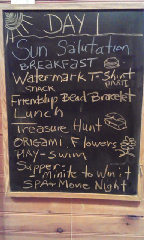 DAY 1
Sun Salutation
BREAKFAST
Watermark T-Shirt
SNACK
Friendship Bead Bracelet
Lunch
Treasure Hunt
ORIGAMI Flowers
PLAY - Swim
Supper
- Minite to Win it
SPA + Movie Night